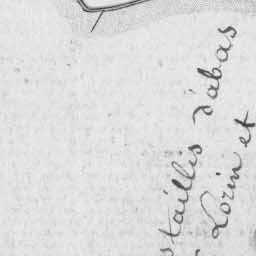 staillis d'abas
Lorin et